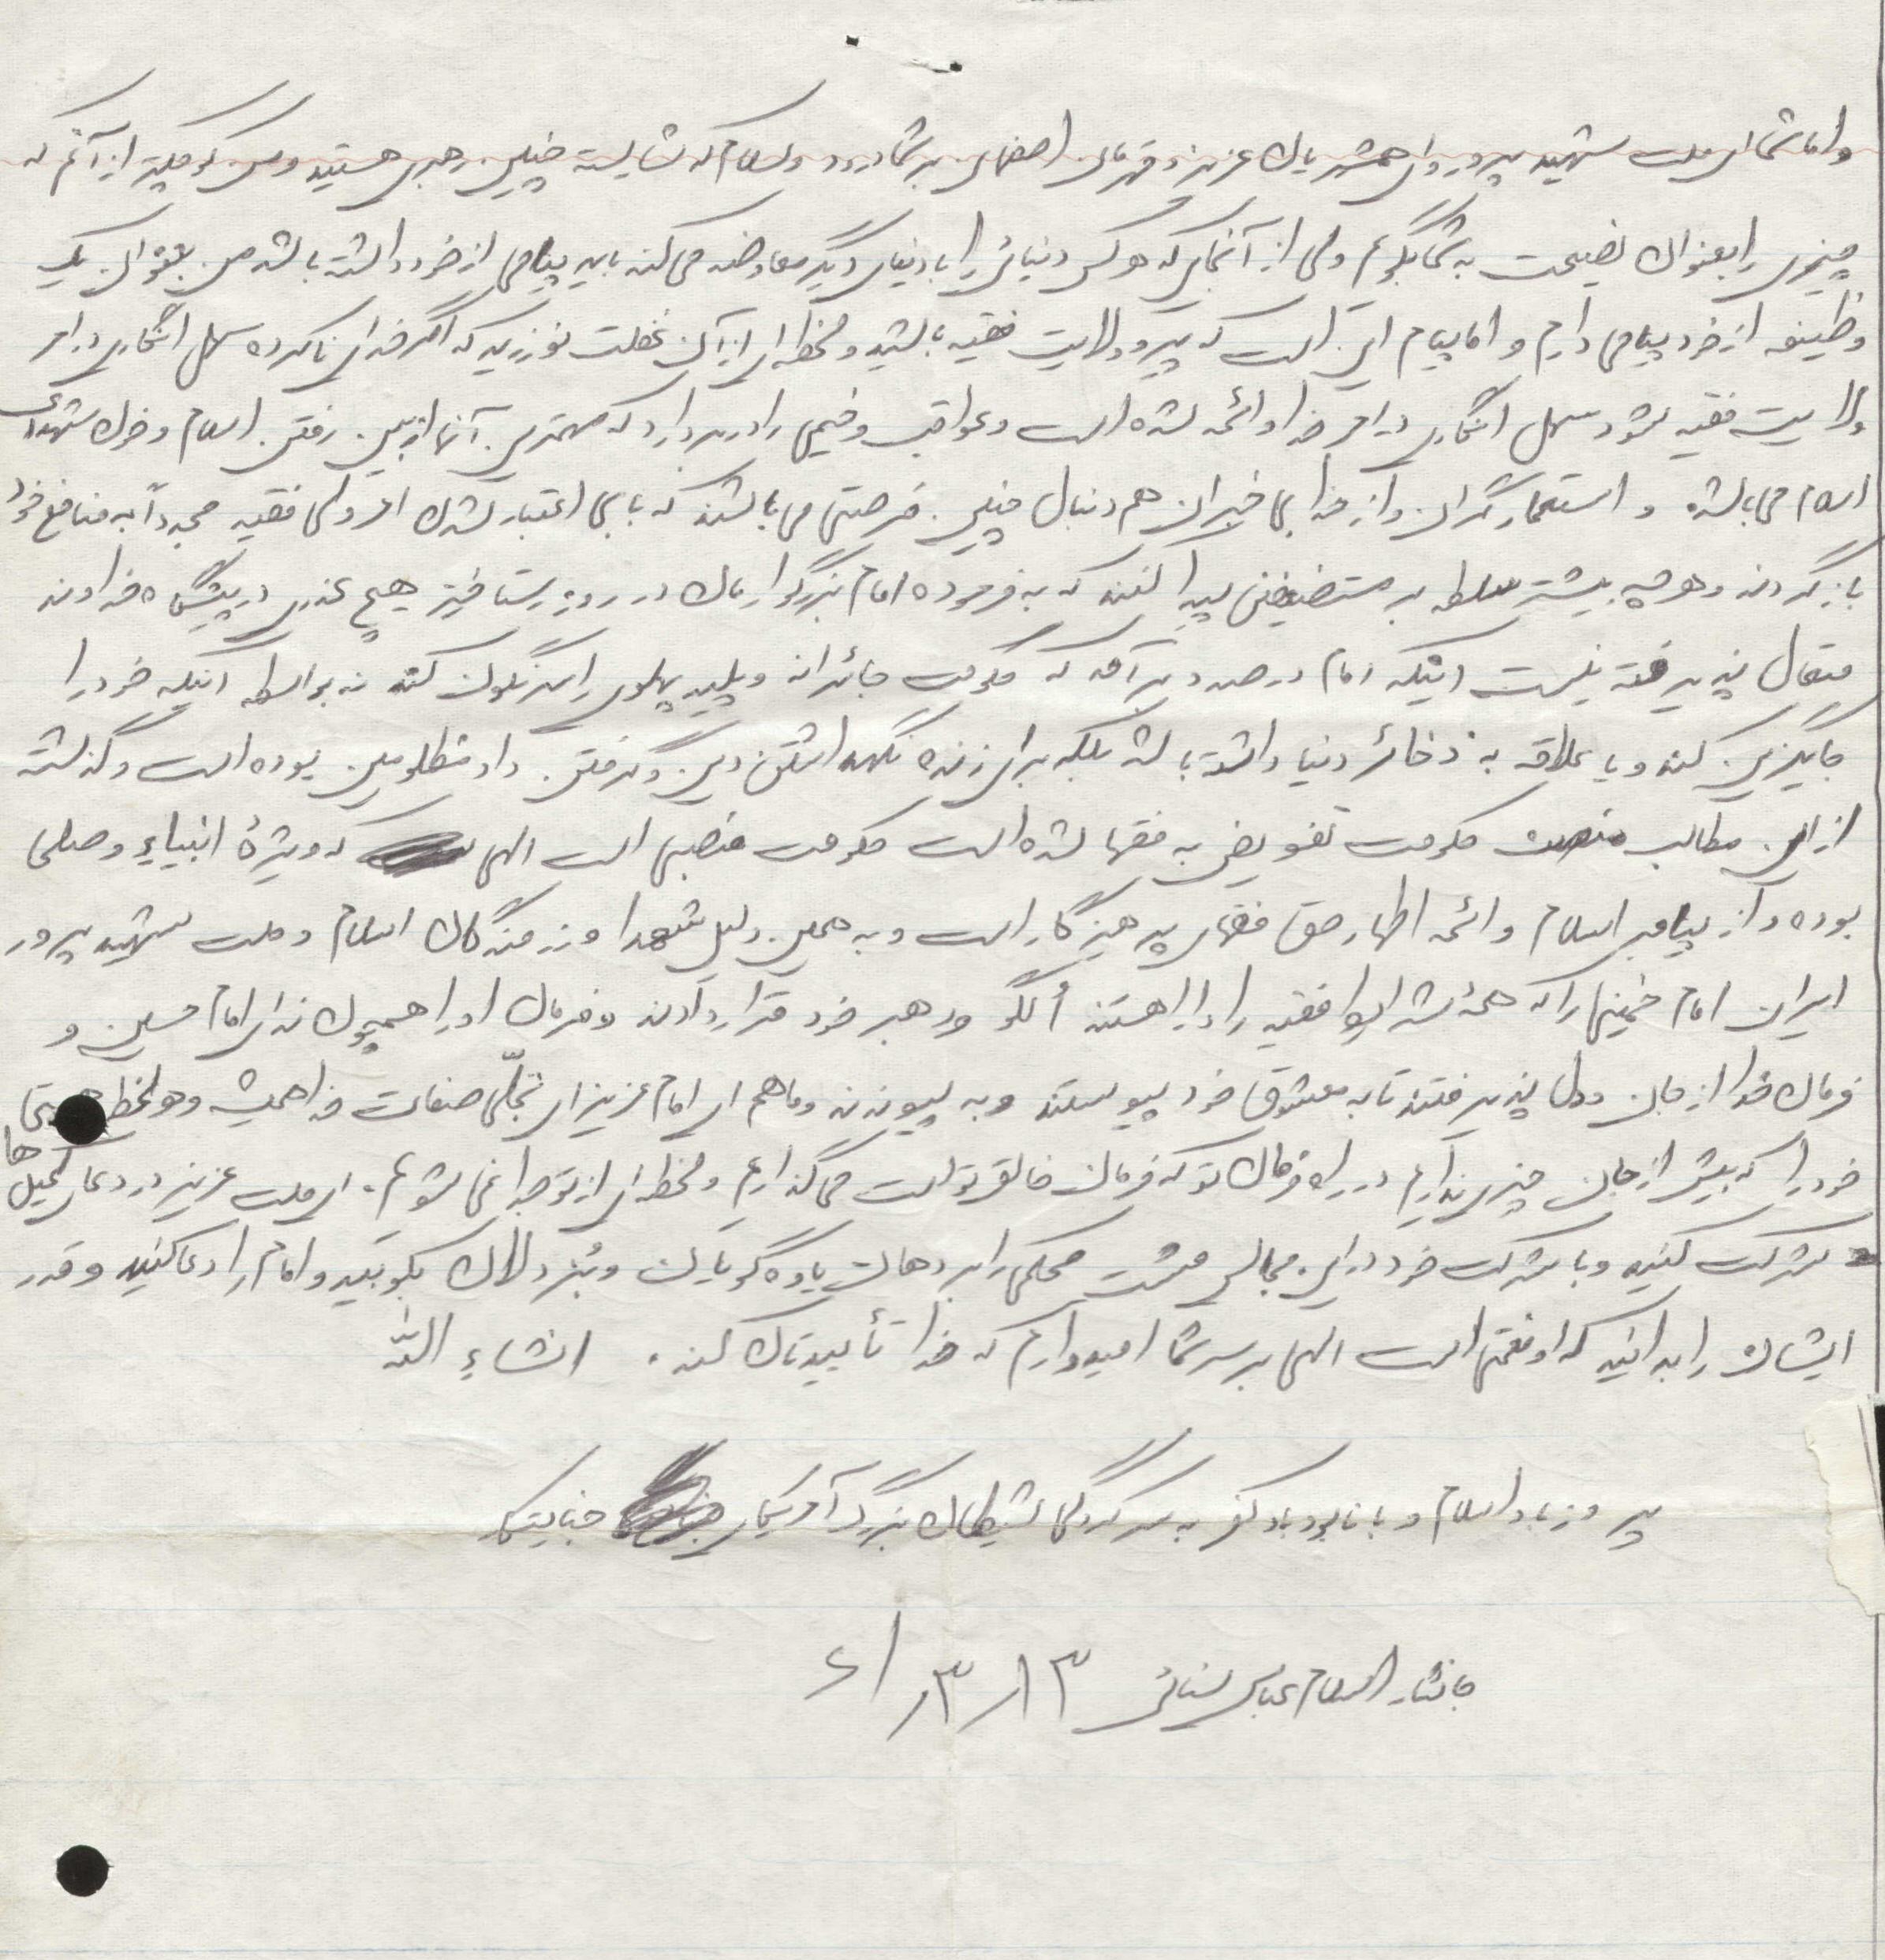 و اما شما ای ملت شهید پرور و ای همشهریان عزیز و قهرمان اصفهانی بر شما درود و سلام که شایسته چنین رهبری هستید و من کوچکتر از آنم که
چیزی را بعنوان نصیحت به شما بگویم ولی از آنجائی که هر کس دنیائی را با دنیای دیگر معاوضه می کند باید پیامی از خود داشته باشد من بعنوان یک
وظیفه از خود پیامی دارم و اما پیام این است که پیرو ولایت فقیه باشید و لحظه ای از آن غفلت نورزید که اگر خدای ناکرده سهل انگاری در امر
ولایت فقیه شود سهل انگاری در امر خدا و ائمه شده است و عواقب وخیمی را در بر دارد که مهمترین آنها از بین رفتن اسلام و خون شهدای
اسلام می باشد و استعمارگران و از خدا بی خبران هم دنبال چنین فرصتی می باشند که با بی اعتبار شدن امر ولی فقیه مجدداً به منافع خود
بازگردند و هر چه بیشتر سلطه بر مستضعفین پیدا کنند که به فرموده امام بزرگوارمان در روز رستاخیز هیچ عذری در پیشگاه خداوند
متعال پذیرفته نیست اینکه امام در صدد برآمد که حکومت جائرانه و پلید پهلوی را سرنگون کند نه بواسطه اینکه خود را
جایگزین کند و یا علاقه به ذخائر دنیا داشته باشد بلکه برای زنده نگهداشتن دین و گرفتن داد مظلومین بوده است و گذشته
از این مطالب منصب حکومت تفویض به فقها شده است حکومت منصبی است الهی که ویژهٔ انبیاءِ وصلی
بوده و از پیامبر اسلام و ائمه اطهار حق فقهای پرهیزگار است و به همین دلیل شهدا و رزمندگان اسلام و ملت شهید پرور
ایران امام خمینی را که همهٔ شرایط فقیه را دارا هستند اُلگو و رهبر خود قرار دادند و فرمان او را همچون ندای امام حسین و
فرمان خدا از جان و دل پذیرفتند تا به معشوق خود پیوستند و به پیوندند و ما هم ای امام عزیز ای تجلّی صفات خدا همیشه و هر لحظه هستی
خود را که بیش از جان چیزی نداریم در راه فرمان تو که فرمان خالق تو است می گذاریم و لحظه ای از تو جدا نمی شویم. ای ملت عزیز در دعای کمیل ها
شرکت کنید و با شرکت خود در این مجالس مشت محکمی را بر دهان یاوه گویان و بُزدلان بکوبید و امام را دعا کنید و قدر
ایشان را بدانید که او نعمتی است الهی بر سر شما امیدوارم که خدا تأییدتان کند. انشاءِ اللّه
پیروز باد اسلام و با نابود باد کفر به سرکردگی شیطان بزرگ آمریکای جنایتکار
جانثار اسلام عباس ۱۳ر۳ر۶۱